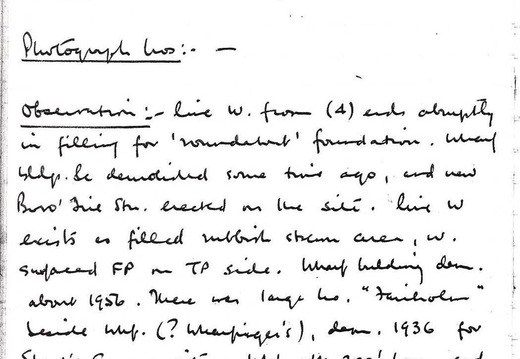 Photograph Nos:- —
Observation:- line W. from (4) ends abruptly
in filling for 'roundabout' foundation. Wharf
bldg. &c demolished some time ago, and new
Boro' Fire Stn. erected on the site. line W
exists as filled rubbish strewn area, w.
surfaced FP on TP side. Wharf building dem.
about 1956. There was large ho. "Fairholm"
beside whf. (? Wharfinger's), dem. 1936 for